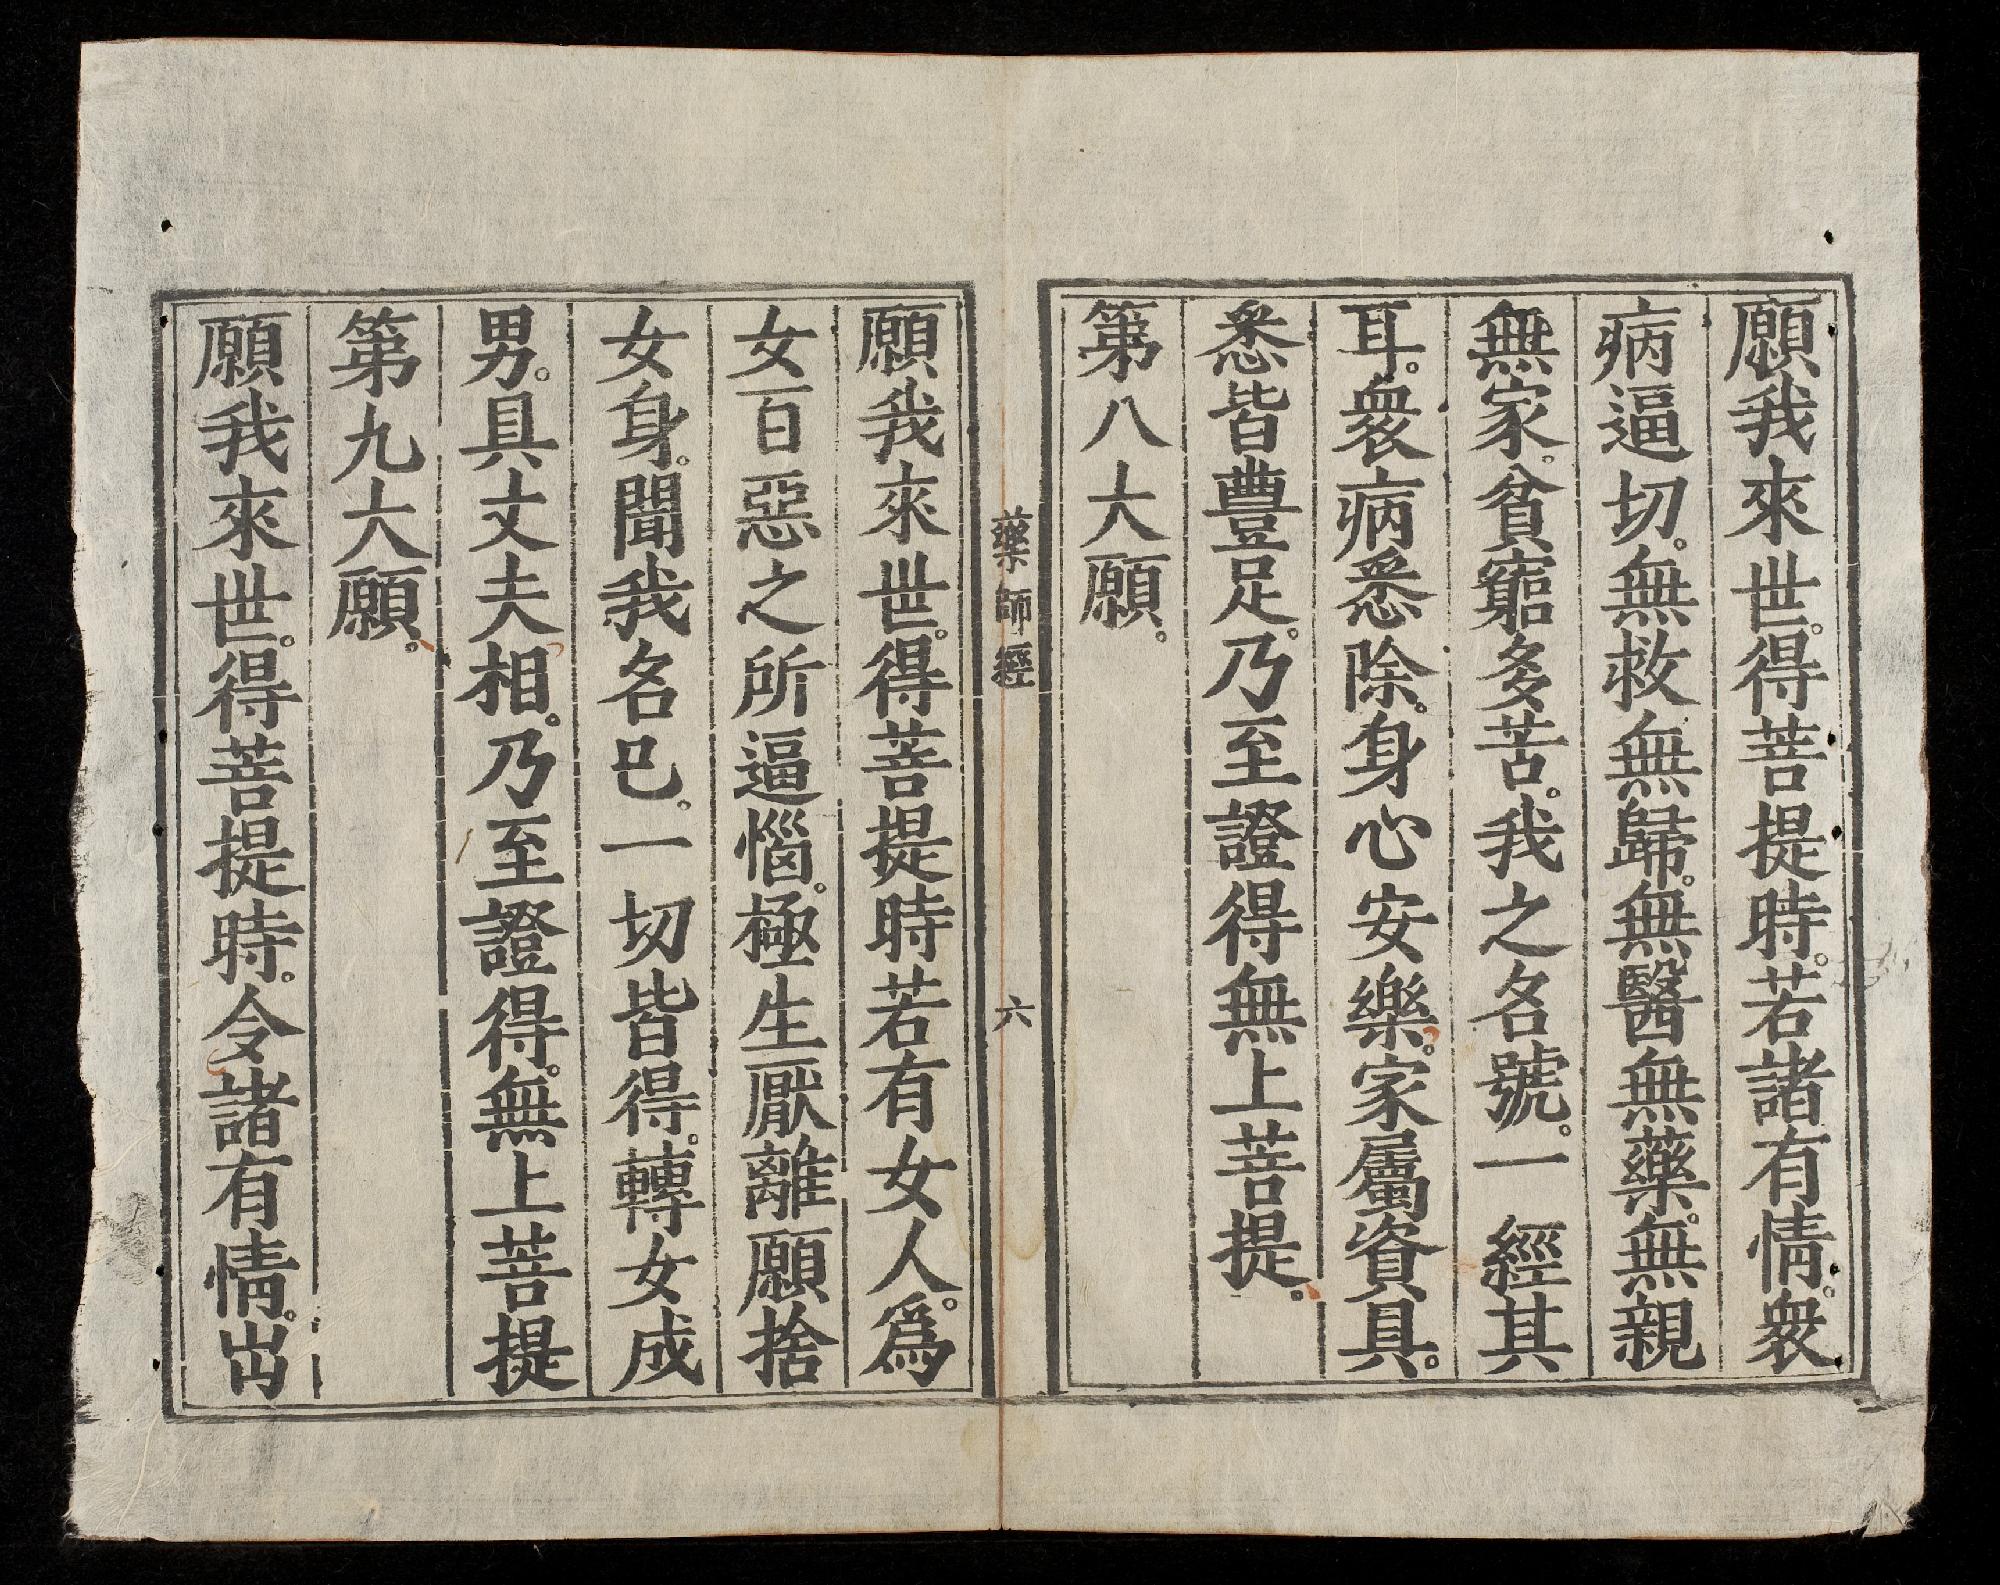 願我來世。得菩提時。若諸有情。衆
病逼切。無救無歸。無醫無藥。無親
無家。貧窮多苦。我之名號。一經其
耳。衆病悉除。身心安樂。家屬資具。
悉皆豊足。乃至證得無上菩提。
第八大願。
藥師經 六
願我來世。得菩提時若有女人。爲
女百惡之所逼惱。極生厭離願捨
女身。聞我名已。一切皆得。轉女成
男。具丈夫相。乃至證得。無上菩提
第九大願。
願我來世。得菩提時。令諸有情。出